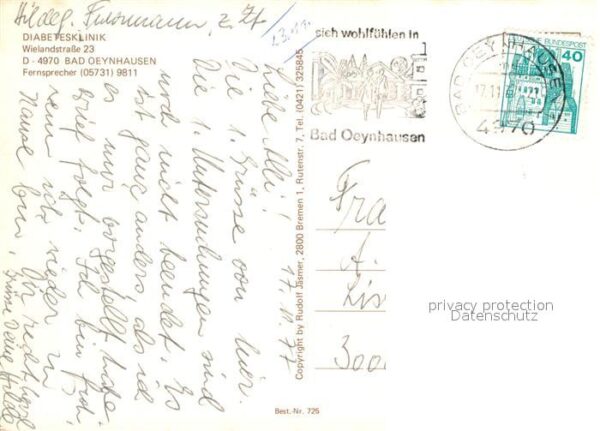 Hildeg. Fuhrmann, z. Zt.
DIABETESKLINIK
Wielandstraße 23
D - 4970 BAD OEYNHAUSEN
Fernsprecher (05731) 9811
17.11.77
Liebe Ali!
Die 1. Grüsse von hier.
Die 1. Untersuchungen sind
noch nicht beendet. Es
ist ganz anders als ich
es mir vorgestellt habe.
Brief folgt. Ich bin froh,
wenn ich wieder zu
Hause bin. Dir recht herzl.
Grüsse Deine Hilde
Copyright by Rudolf Jasmer, 2800 Bremen 1, Rutenstr. 7, Tel. (0421) 325845
Best.-Nr. 725
sich wohlfühlen in
Bad Oeynhausen
BAD OEYNHAUSEN
17.11.
4970
BUNDESPOST
40
Fra
A.
Lis
3000
privacy protection
Datenschutz